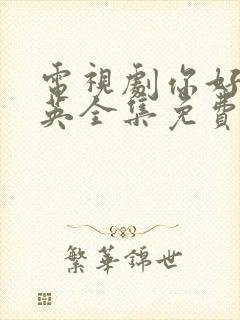 電視劇你好
英全集免費
繁華錦世